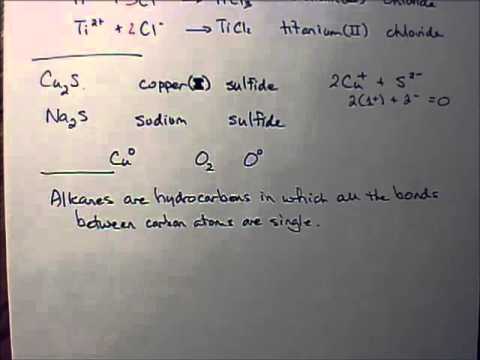 TiCl₃ chloride
Ti²⁺ + 2Cl⁻ → TiCl₂ titanium(II) chloride
Cu₂S copper(I) sulfide 2Cu⁺ + S²⁻
2(1+) + 2- = 0
Na₂S sodium sulfide
Cu⁰ O₂ O⁰
Alkanes are hydrocarbons in which all the bonds
between carbon atoms are single.